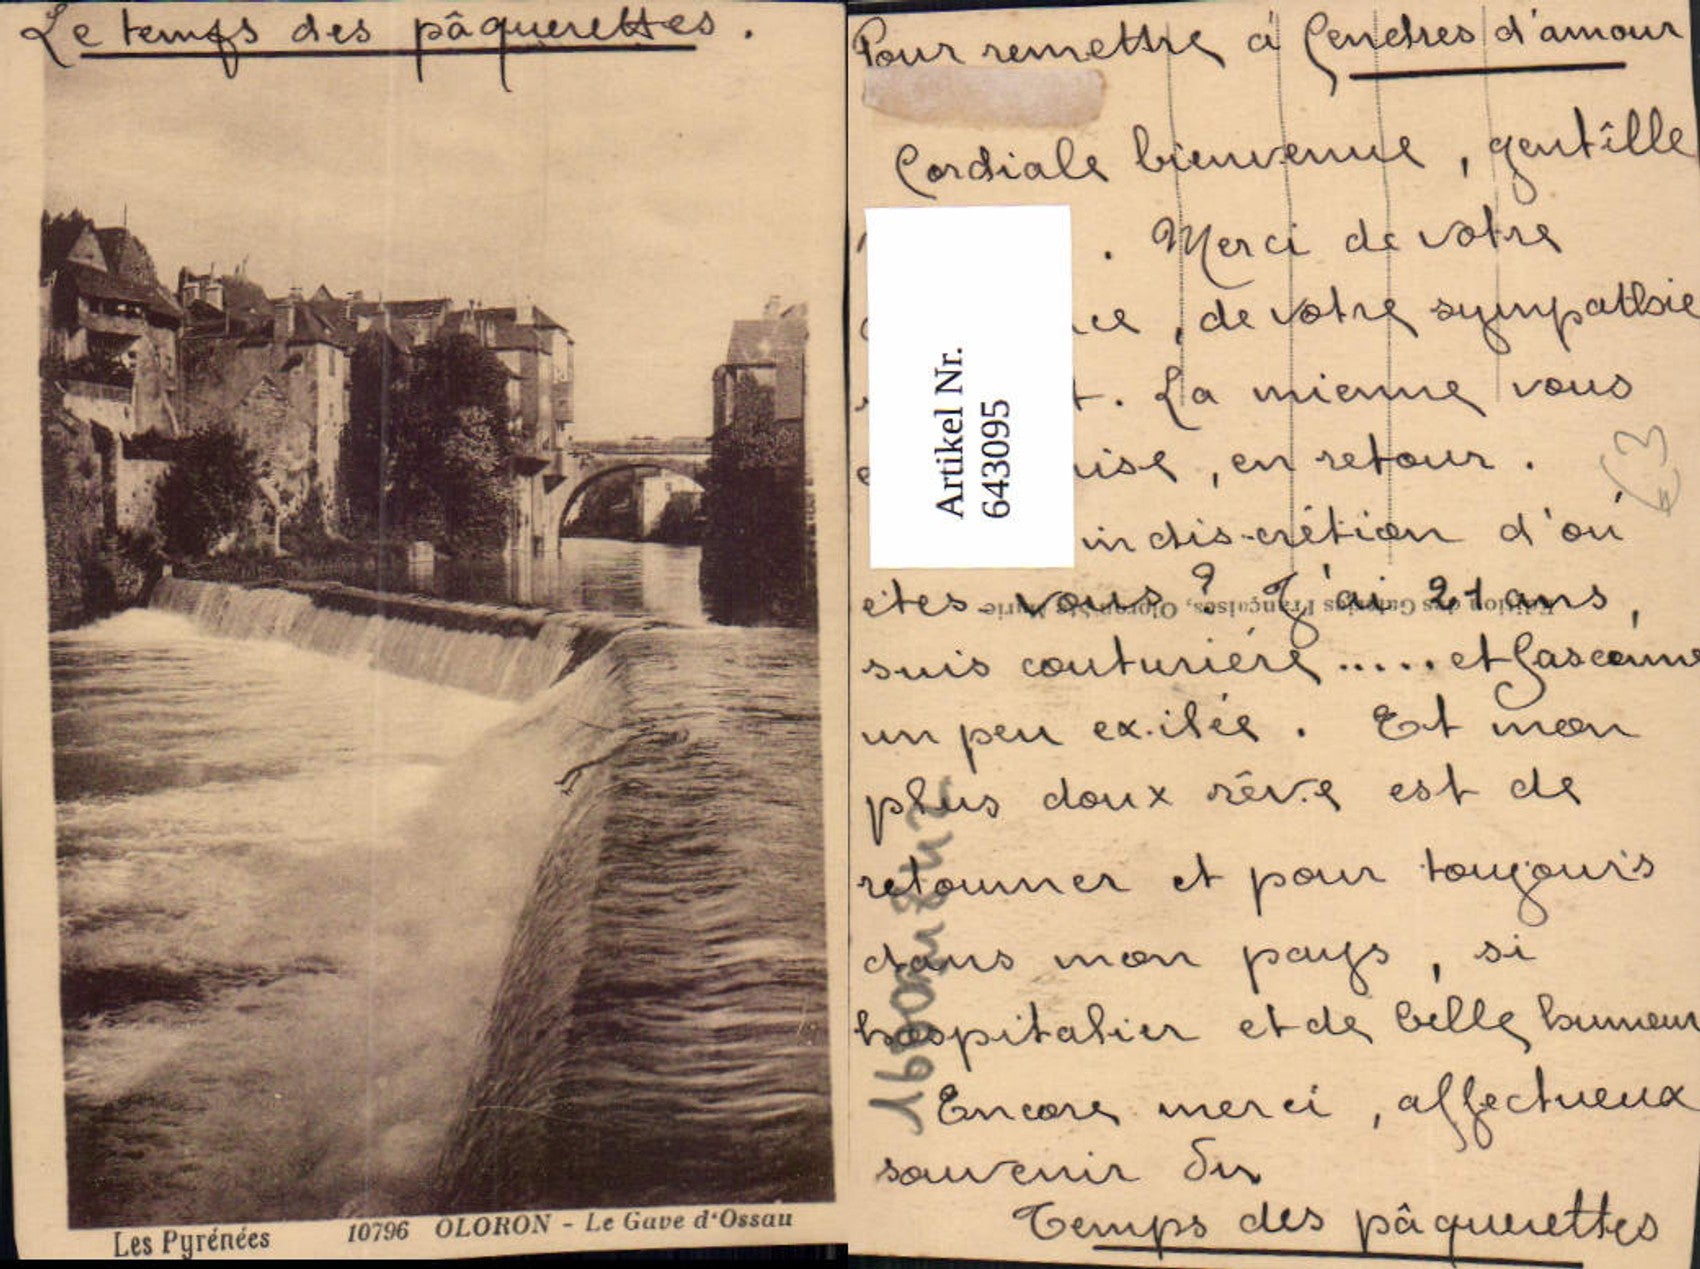 Le temps des pâquerettes.
Les Pyrénées
10796 OLORON - Le Gave d'Ossau
Pour remettre à Cendres d'amour
Cordiale bienvenue, gentille
. Merci de votre
ce, de votre sympathie
t. La mienne vous
uise, en retour.
indis-crétion d'où
êtes vous? J'ai 21 ans,
Edition des Galeries Françaises, Oloron-Ste Marie
suis couturière ..... et Gasconne
un peu exilée. Et mon
plus doux rêve est de
retourner et pour toujours
dans mon pays, si
hospitalier et de belle humeur
Encore merci, affectueux
souvenir du
Temps des pâquerettes
Artikel Nr.
643095
€3